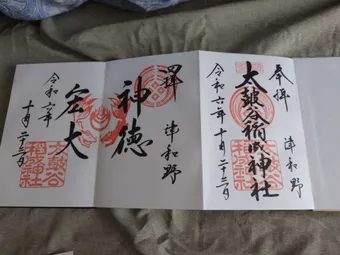 奉拝 津和野
太皷谷稲成神社
令和六年十月二十三日
奉拝 津和野
神徳
宏大
令和六年十月二十三日
太皷谷
稲成神社